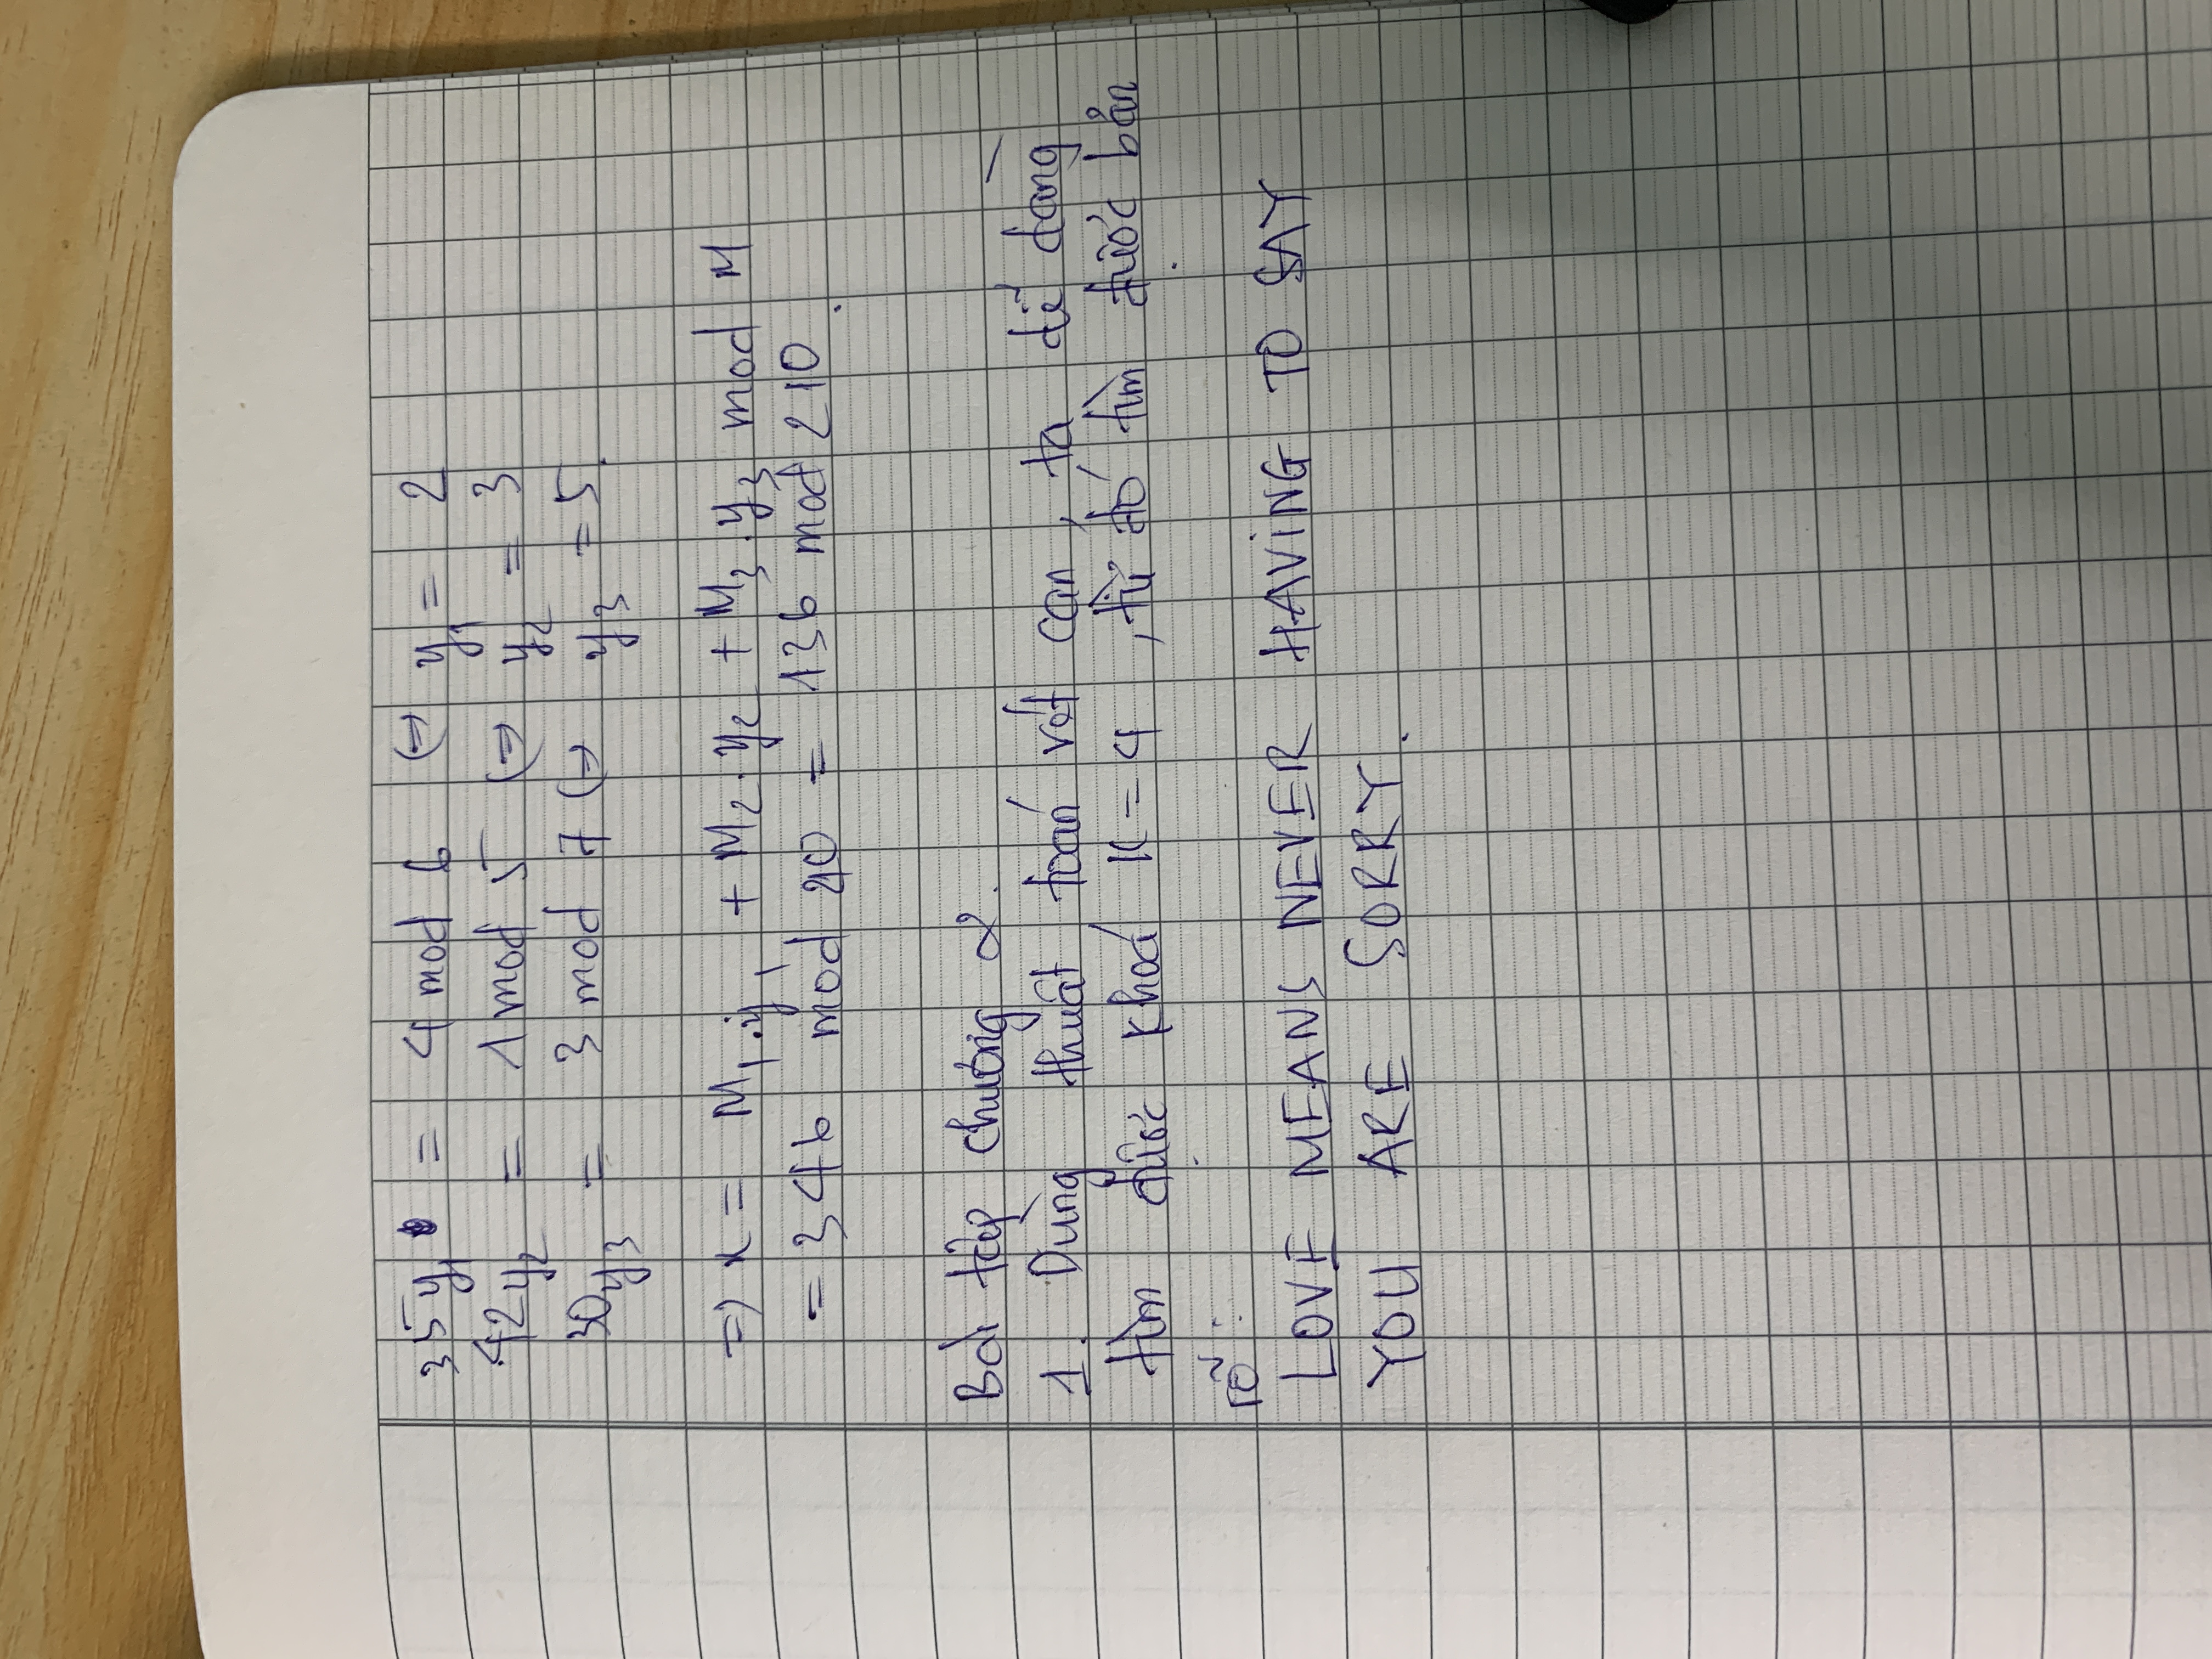 35y₁ = 4 mod 6 (=) y₁ = 2
42y₂ = 1 mod 5 (=) y₂ = 3
30y₃ = 3 mod 7 (=) y₃ = 5.
=) x = M₁.y₁ + M₂.y₂ + M₃.y₃ mod M
= 346 mod 210 = 136 mod 210.
Bài tập chương 2.
1. Dùng thuật toán vét cạn, ta dễ dàng
tìm được khoá K = 4, từ đó tìm được bản
rõ:
LOVE MEANS NEVER HAVING TO SAY
YOU ARE SORRY.